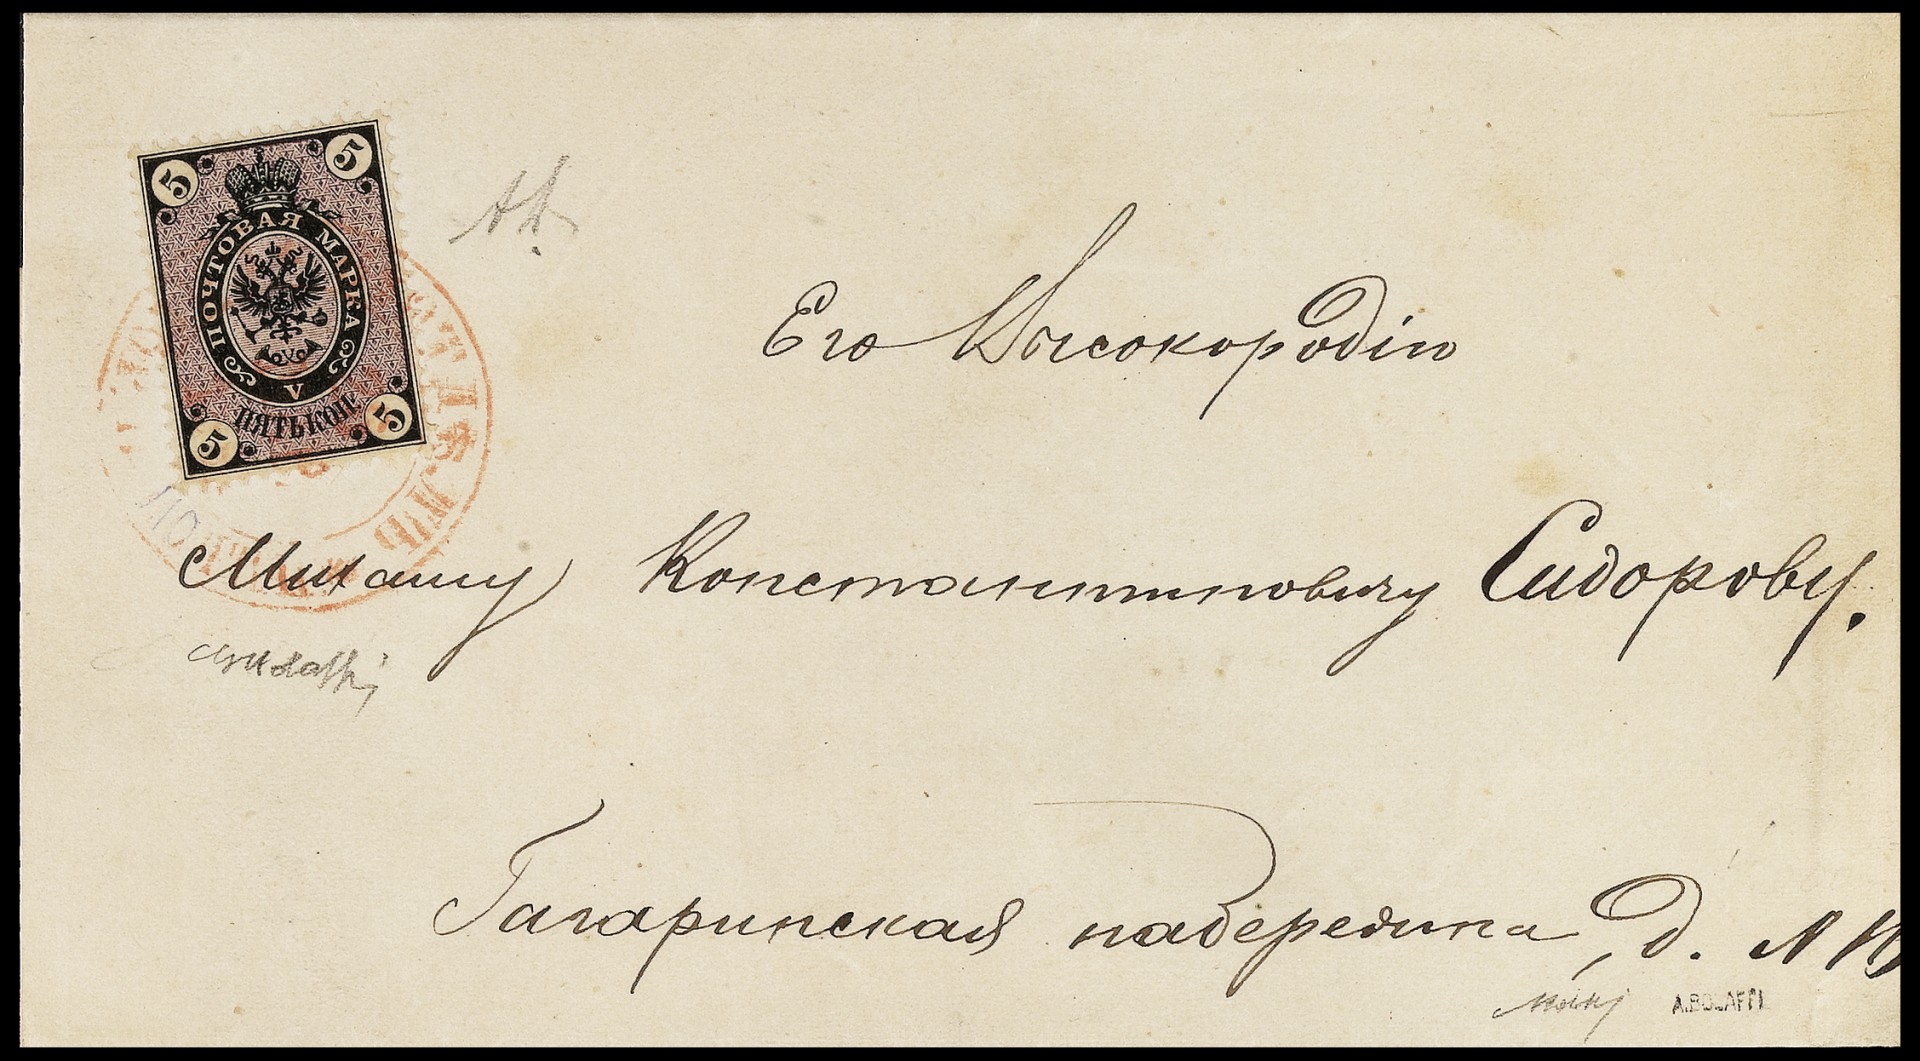 5 5
ПОЧТОВАЯ МАРКА
V
ПЯТЬ КОП.
5 5
Его Высокородію
Михаилу Константиновичу Сидорову.
Гагаринская набережная, д. №
A.BOLAFFI